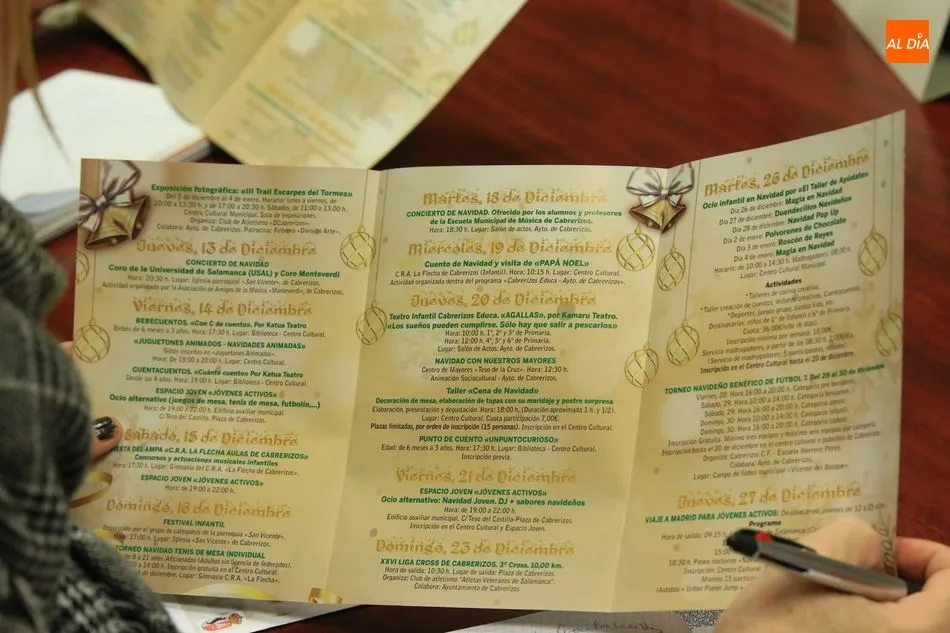 AL DÍA
Exposición fotográfica: «III Trail Escarpes del Tormes»
Del 5 de diciembre al 4 de enero. Horario: lunes a viernes, de
10:00 a 13:30 h, y de 17:00 a 20:30 h. Sábados, de 11:00 a 13:00 h.
Centro Cultural Municipal. Sala de exposiciones.
Organiza: Club de Atletismo «DCabrerizos».
Colabora: Ayto. de Cabrerizos. Patrocina: Felvero «División Arte».
Jueves, 13 de Diciembre
CONCIERTO DE NAVIDAD
Coro de la Universidad de Salamanca (USAL) y Coro Monteverdi
Hora: 20:30 h. Lugar: Iglesia parroquial «San Vicente», de Cabrerizos.
Actividad organizada por la Asociación de Amigos de la Música «Monteverdi», de Cabrerizos.
Viernes, 14 de Diciembre
BEBECUENTOS. «Con C de cuento». Por Katua Teatro
Bebés de 6 meses a 3 años. Hora: 17:30 h. Lugar: Biblioteca - Centro Cultural.
«JUGUETONES ANIMADOS - NAVIDADES ANIMADAS»
Niños inscritos en «Juguetones Animados».
Hora: De 18:00 a 20:00 h. Lugar: Centro Cultural.
CUENTACUENTOS. «Cuánto cuento» Por Katua Teatro
Desde los 4 años. Hora: 19:00 h. Lugar: Biblioteca - Centro Cultural.
ESPACIO JOVEN «JÓVENES ACTIVOS»
Ocio alternativo (juegos de mesa, tenis de mesa, futbolín,...)
Hora: de 19:00 a 22:00 h. Edificio auxiliar municipal.
C/Teso del Castillo. Plaza de Cabrerizos.
Sábado, 15 de Diciembre
FIESTA DEL AMPA «C.R.A. LA FLECHA AULAS DE CABRERIZOS»
Concursos y actuaciones musicales infantiles
Hora: 17:30 h. Lugar: Gimnasio del C.R.A. «La Flecha de Cabrerizos».
ESPACIO JOVEN «JÓVENES ACTIVOS»
Hora: de 19:00 a 22:00 h.
Domingo, 16 de Diciembre
FESTIVAL INFANTIL
Organizado por el grupo de catequesis de la parroquia «San Vicente».
17:00 h. Lugar: Iglesia «San Vicente» de Cabrerizos.
TORNEO NAVIDAD TENIS DE MESA INDIVIDUAL
de 8 a 21 años. Aficionados (Adultos sin licencia de federados).
a 14:00 h. Inscripción gratuita en el Centro Cultural.
de diciembre. Lugar: Gimnasio C.R.A. «La Flecha».
Martes, 18 de Diciembre
CONCIERTO DE NAVIDAD. Ofrecido por los alumnos y profesores
de la Escuela Municipal de Música de Cabrerizos.
Hora: 18:30 h. Lugar: Salón de actos. Ayto. de Cabrerizos.
Miércoles, 19 de Diciembre
Cuento de Navidad y visita de «PAPÁ NOEL»
C.R.A. La Flecha de Cabrerizos (Infantil). Hora: 10:15 h. Lugar: Centro Cultural.
Actividad organizada dentro del programa «Cabrerizos Educa - Ayto. de Cabrerizos».
Jueves, 20 de Diciembre
Teatro Infantil Cabrerizos Educa. «AGALLAS», por Kamaru Teatro.
«Los sueños pueden cumplirse. Sólo hay que salir a pescarlos»
Hora: 10:00 h. 1º, 2º y 3º de Primaria.
Hora: 12:00 h. 4º, 5º y 6º de Primaria.
Lugar: Salón de Actos. Ayto. de Cabrerizos.
NAVIDAD CON NUESTROS MAYORES
Centro de Mayores «Teso de la Cruz». Hora: 12:30 h.
Animación Sociocultural - Ayto. de Cabrerizos.
Taller «Cena de Navidad»
Decoración de mesa, elaboración de tapas con su maridaje y postre sorpresa
Elaboración, presentación y degustación. Hora: 18:00 h (Duración aproximada 1 h. y 1/2).
Lugar: Centro Cultural. Cuota participación 7,00€.
Plazas limitadas, por orden de inscripción (15 personas). Inscripción en el Centro Cultural.
PUNTO DE CUENTO «UNPUNTOCURIOSO»
Edad: de 6 meses a 3 años. Hora: 17:30 h. Lugar: Biblioteca - Centro Cultural.
Inscripción previa.
Viernes, 21 de Diciembre
ESPACIO JOVEN «JÓVENES ACTIVOS»
Ocio alternativo: Navidad Joven. DJ + sabores navideños
Hora: de 19:00 a 22:00 h.
Edificio auxiliar municipal. C/Teso del Castillo-Plaza de Cabrerizos.
Inscripción en el Centro Cultural y Espacio Joven.
Domingo, 23 de Diciembre
XXVI LIGA CROSS DE CABRERIZOS. 3º Cross. 10,00 km.
Hora de salida: 10:30 h. Lugar: Plaza de Cabrerizos.
Organiza: Club de atletismo "Atletas Veteranos de Salamanca".
Colabora: Ayuntamiento de Cabrerizos
Martes, 26 de Diciembre
Ocio infantil en Navidad por «El Taller de Ayúdate»
Día 26 de diciembre: Magia en Navidad
Día 27 de diciembre: Duendecillos Navideños
Día 28 de diciembre: Navidad Pop Up
Día 2 de enero: Polvorones de Chocolate
Día 3 de enero: Roscón de Reyes
Día 4 de enero: Magia en Navidad
Horario: de 10:00 a 14:30 h. Madrugadores: 08:30 h.
Lugar: Centro Cultural Municipal.
Actividades
*Talleres de cocina creativa.
*Taller creación de cuentos, lectura creativa. Cuentacuentos.
*Deportes, juegos grupo, zumba kids, etc.
Destinatarios: niños de 1º de Infantil a 6º de Primaria.
Cuota: 36,00€/niño (6 días).
Inscripción mínima por semana: 18,00€.
Servicio madrugadores, a partir de las 08:30 h.
Inscripción en el Centro Cultural hasta el 20 de diciembre.
TORNEO NAVIDEÑO BENÉFICO DE FÚTBOL 7. Del 28 al 30 de diciembre
Viernes, 28: Hora 16:00 a 20:00 h. Categoría prebenjamín.
Sábado, 29: Hora 10:00 a 14:00 h. Categoría benjamín.
Sábado, 29: Hora 16:00 a 20:00 h. Categoría alevín.
Domingo, 30: Hora 10:00 a 14:00 h. Categoría infantil.
Domingo, 30: Hora 16:00 a 20:00 h. Categoría cadete.
Inscripción Gratuita. Mínimo tres equipos y máximo seis equipos por categoría.
Inscripción hasta el 20 de diciembre en el centro cultural o pabellón de Cabrerizos.
Organiza: Cabrerizos C.F. - Escuela Herrero Pérez.
Colabora: Ayto. de Cabrerizos.
Lugar: Campo de fútbol municipal «Vicente del Bosque».
Jueves, 27 de Diciembre
VIAJE A MADRID PARA JÓVENES ACTIVOS:
Programa
Hora de salida: 09:15 h.
18:30 h. Paseo
Inscripción: Centro
Mínimo 15
(Autobús + Urban Planet Jump +